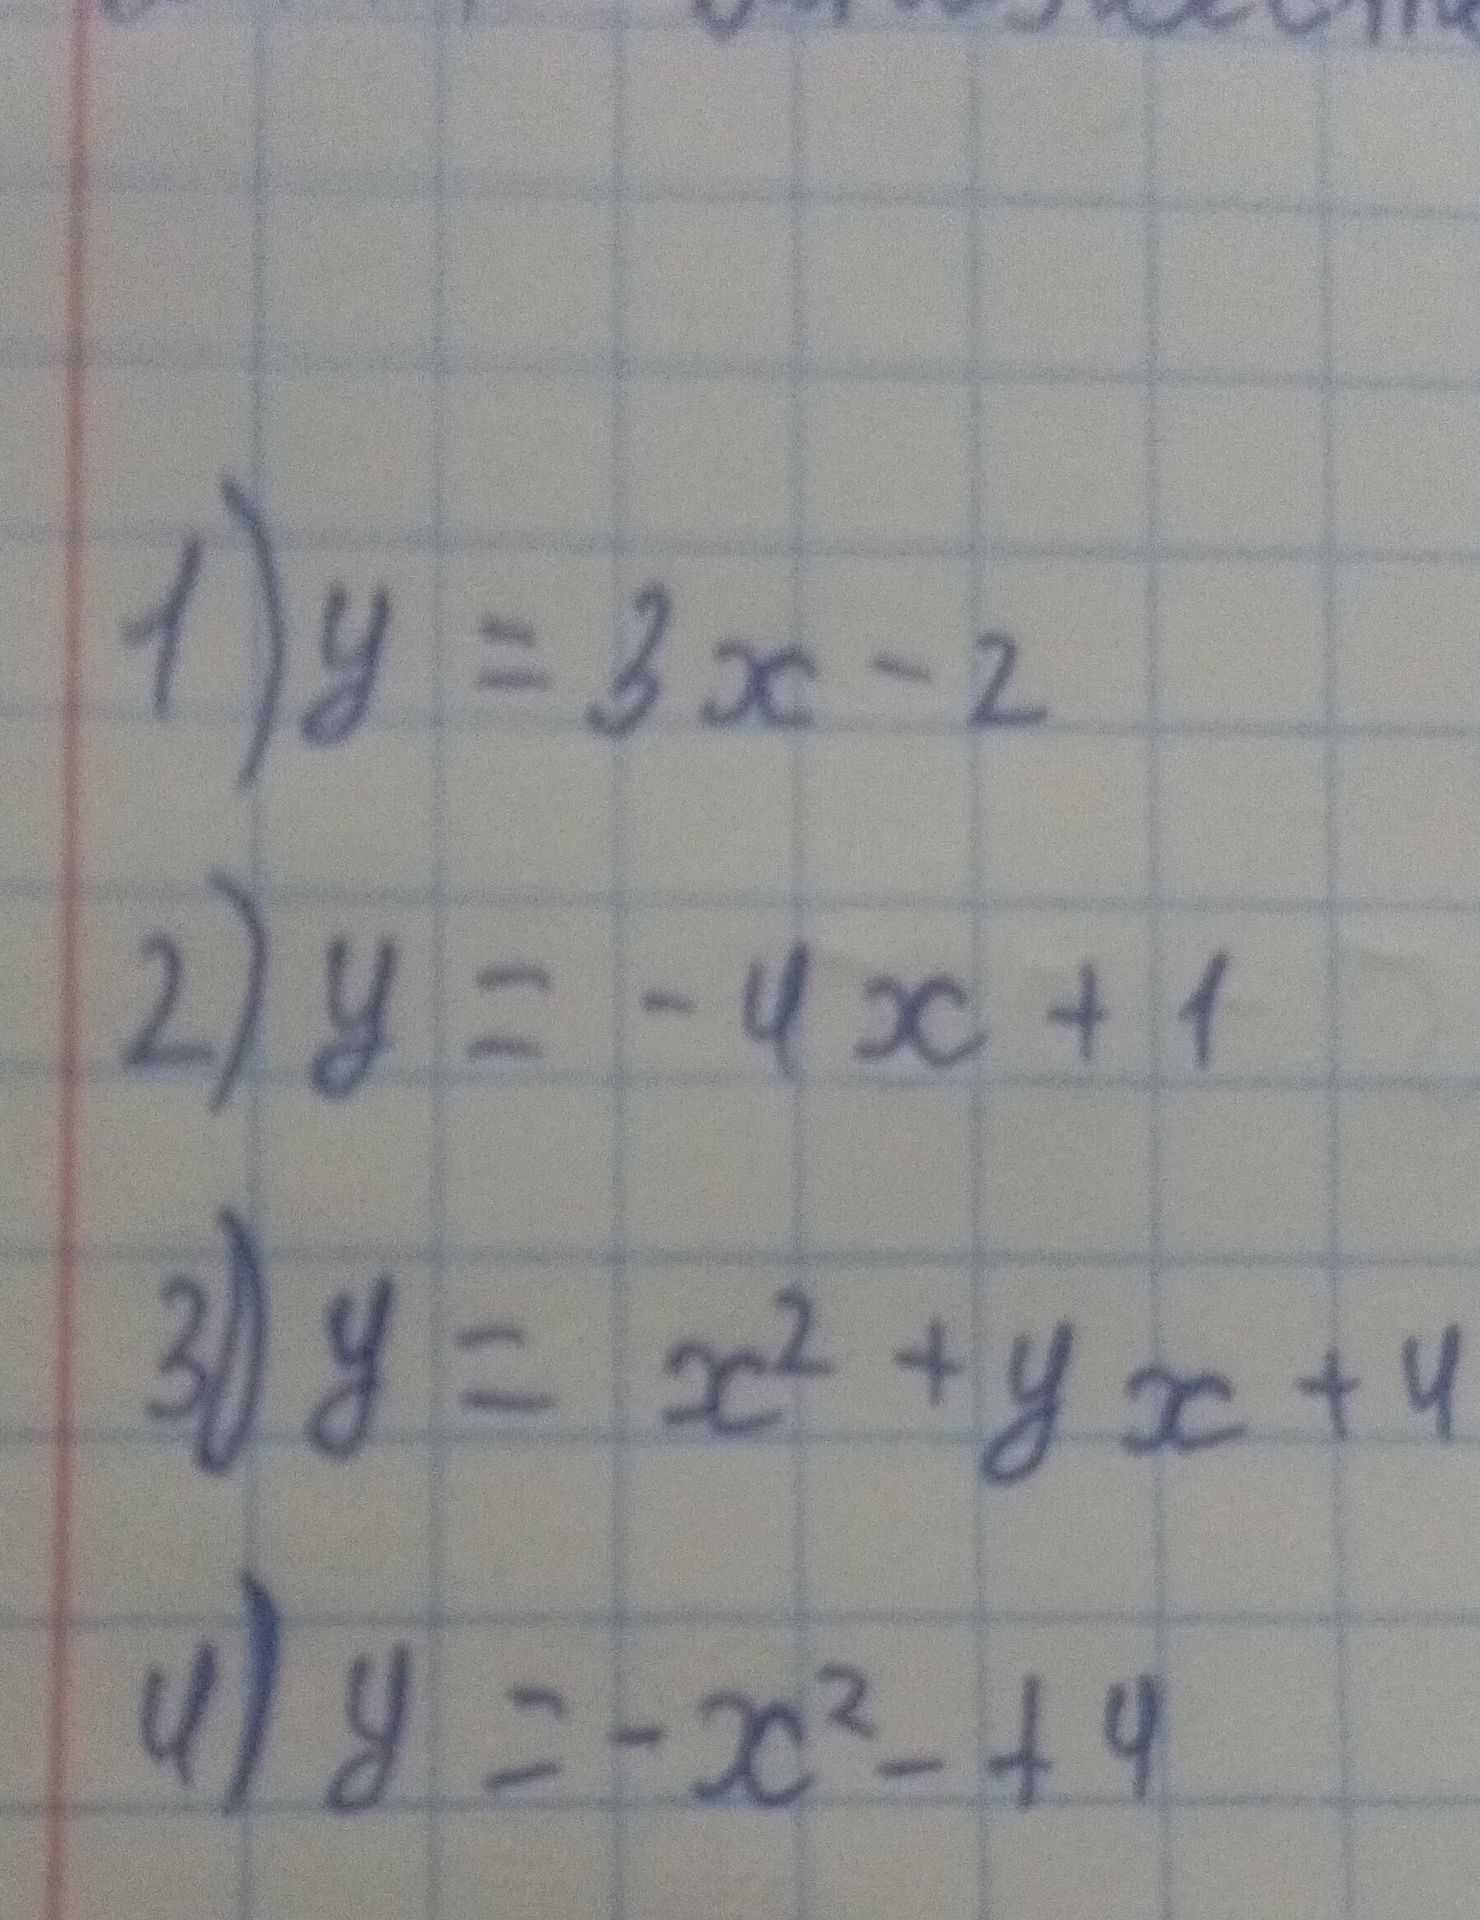 1) y = 3x - 2
2) y = - 4x + 1
3) y = x² + yx + 4
4) y = - x² - + 4